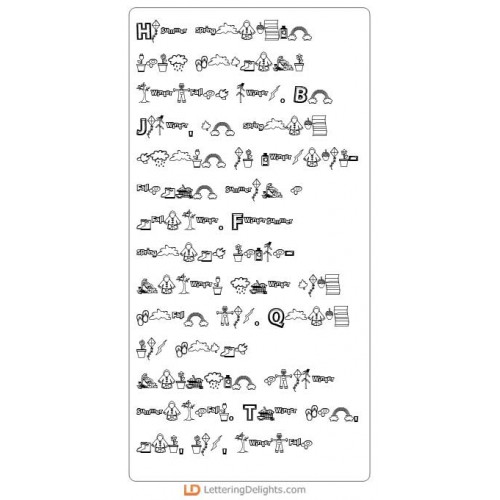 H Summer Spring
Winter Fall Winter. B
J Winter, Spring
Winter -
Fall Summer
Fall Winter. F Winter Summer
Spring -
Winter Winter Winter
Fall Winter. Q
Winter
Winter Winter
Summer Fall. T Winter ,
, , , Winter Fall .
LD LetteringDelights.com